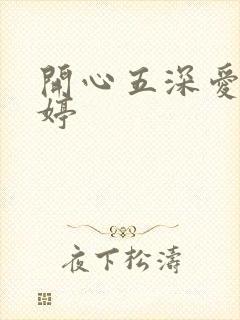 開心五深愛
婷
夜下松濤